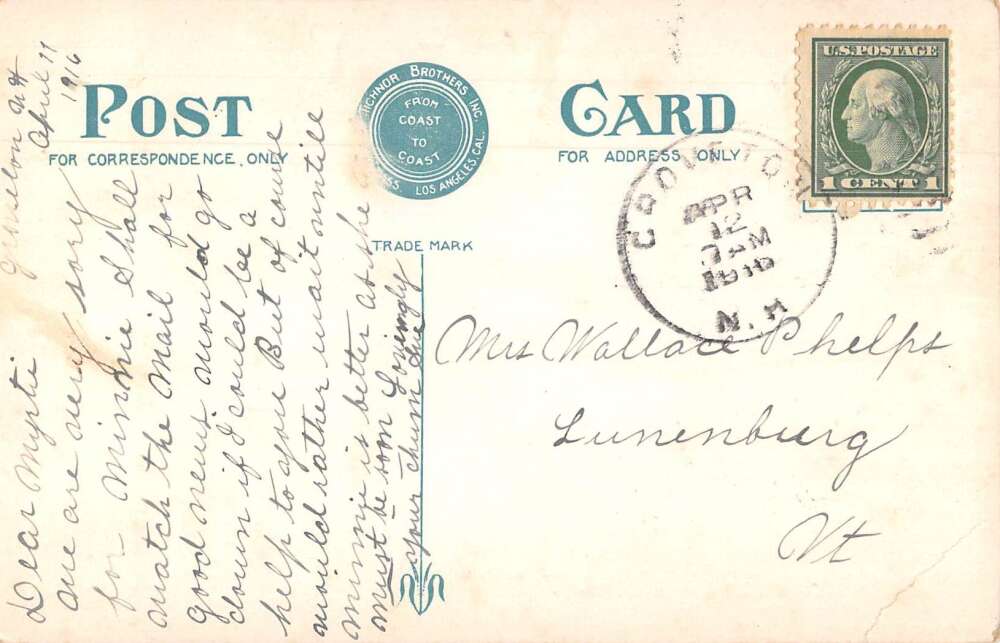 POST
CARD
FOR CORRESPONDENCE ONLY
FOR ADDRESS ONLY
BROTHERS INC.
LOS ANGELES, CAL.
FROM
COAST
TO
COAST
TRADE MARK
U.S. POSTAGE
1 CENT 1
APR
12
AM
N.H
April 11
1916
Dear Myrtie
We are very sorry
for Minnie Shall
watch the Mail for
good news would go
down if I could be a
help to you But of course
would rather wait untill
Minnie is better as she
must be soon Lovingly
your chum
Mrs Wallace Phelps
Lunenburg
Vt